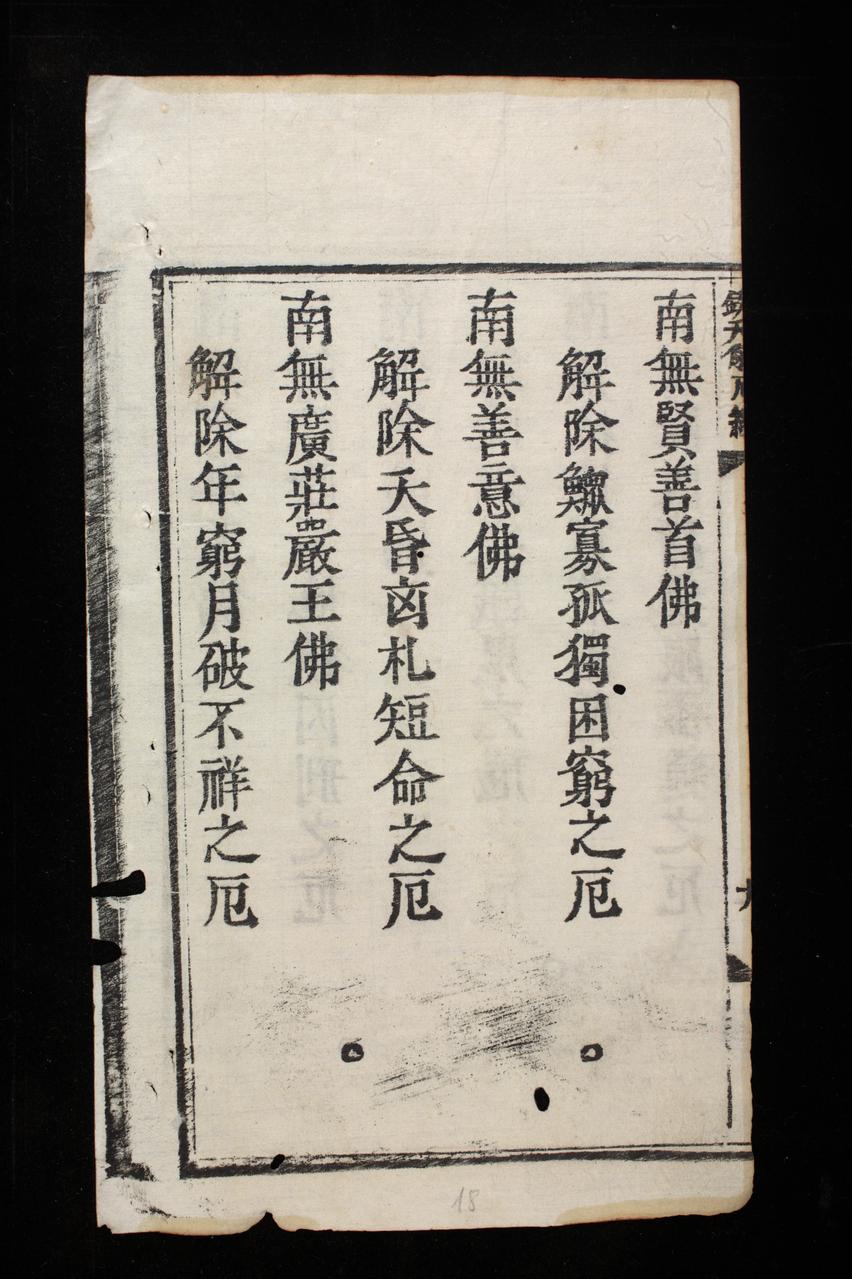 南無賢善首佛
解除鰥寡孤獨困窮之厄
南無善意佛
解除夭昏凶札短命之厄
南無廣莊嚴王佛
解除年窮月破不祥之厄
18